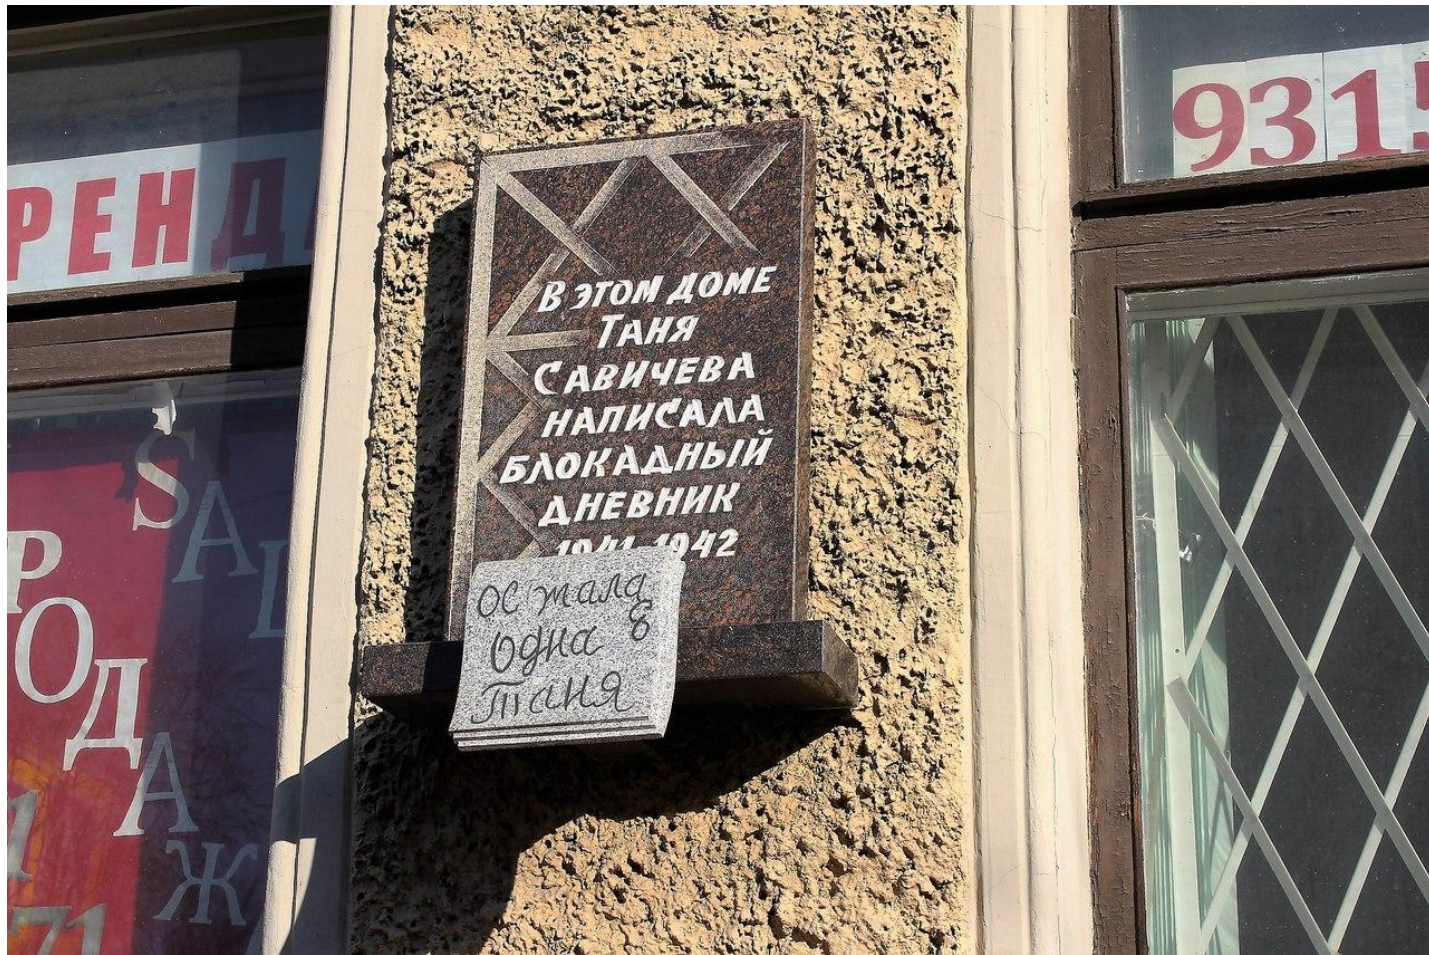 РЕНДА
9315
В ЭТОМ ДОМЕ
ТАНЯ
САВИЧЕВА
НАПИСАЛА
БЛОКАДНЫЙ
ДНЕВНИК
1941-1942
осталась
одна
Таня
SAL
РОДАЖ
1
71